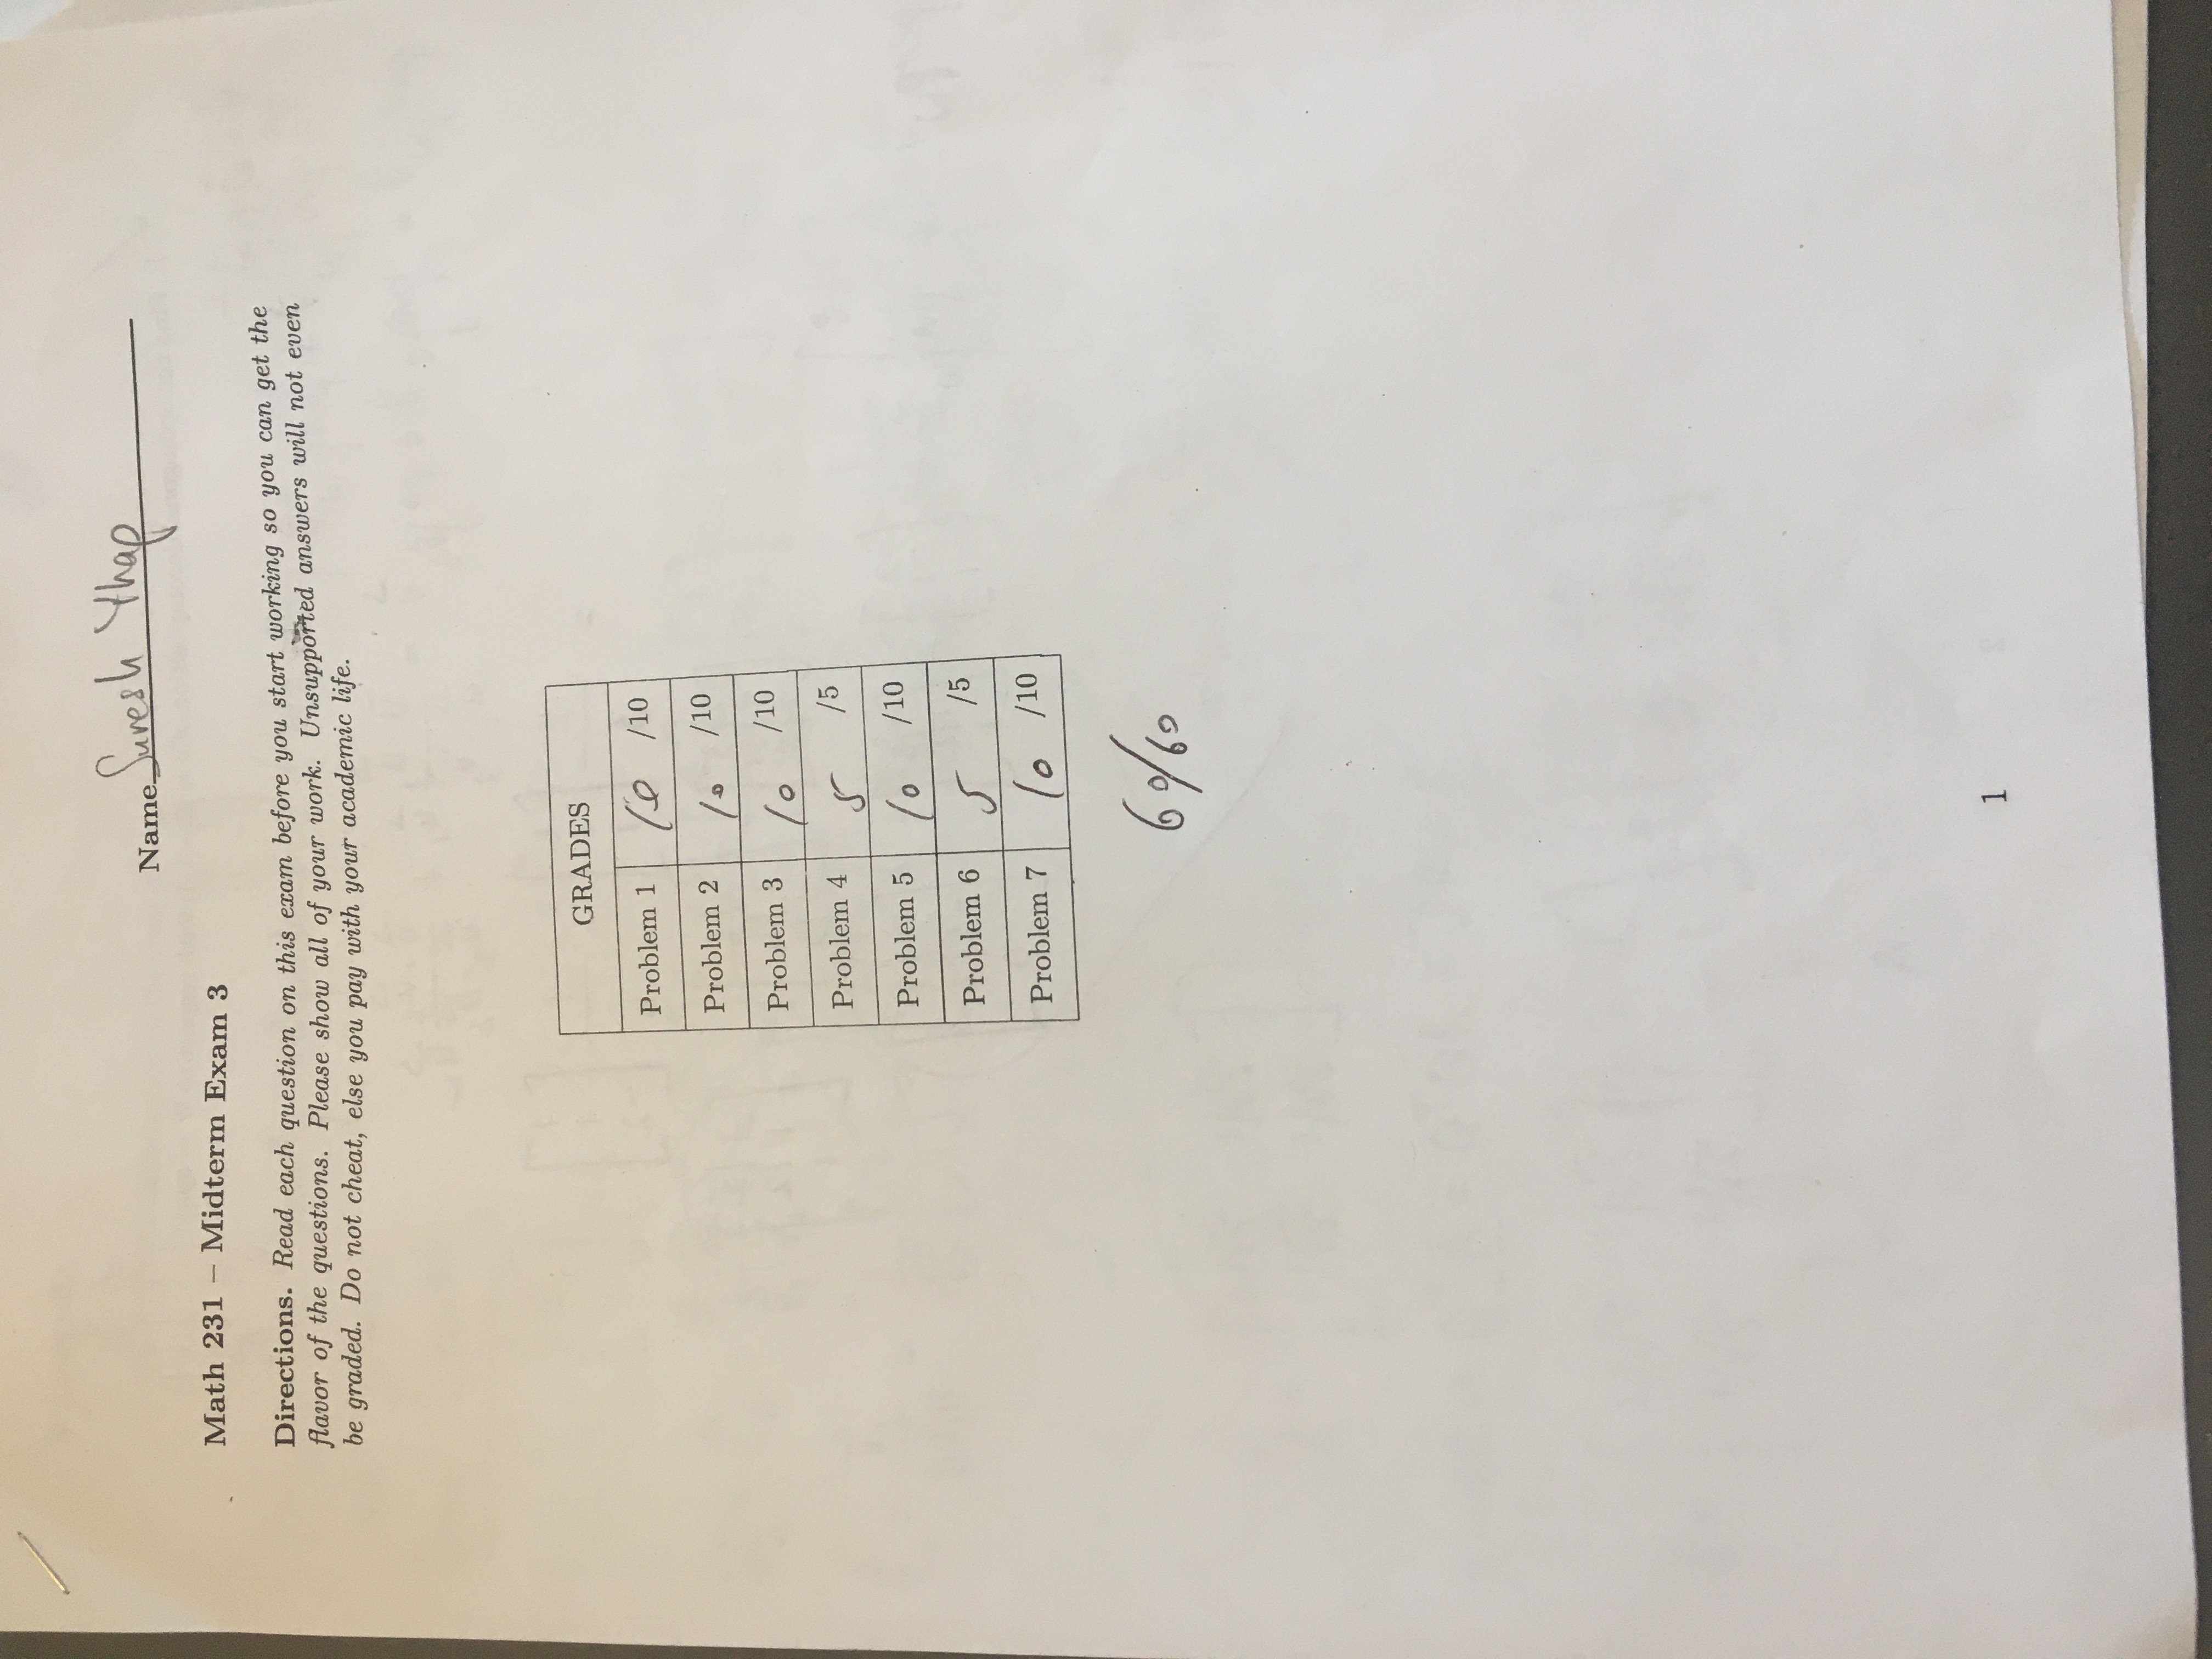 Name Suresh Thap
Math 231 – Midterm Exam 3
Directions. Read each question on this exam before you start working so you can get the
flavor of the questions. Please show all of your work. Unsupported answers will not even
be graded. Do not cheat, else you pay with your academic life.
GRADES
Problem 1 10 /10
Problem 2 10 /10
Problem 3 10 /10
Problem 4 5 /5
Problem 5 10 /10
Problem 6 5 /5
Problem 7 10 /10
60/60
1